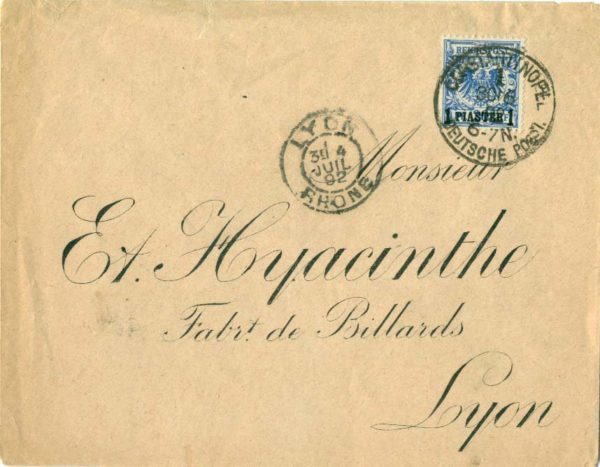 REICHSPOST
1 PIASTER 1
CONSTANTINOPEL
1
30/6
6-7N.
DEUTSCHE POST
LYON
4
JUIL
92
RHONE
Monsieur
Et. Hyacinthe
Fabrt. de Billards
Lyon